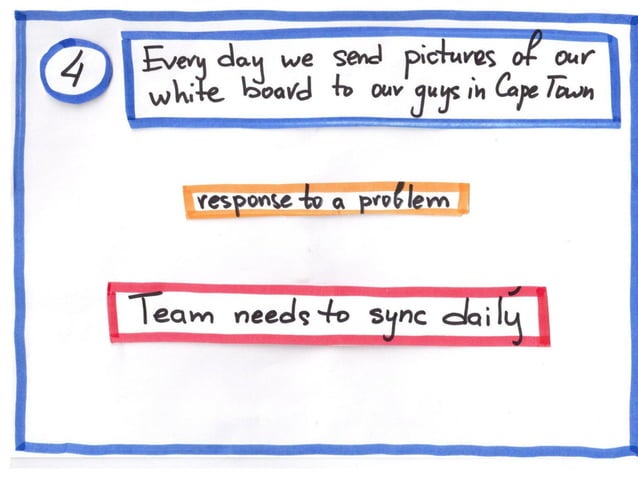 4
Every day we send pictures of our
white board to our guys in Cape Town
response to a problem
Team needs to sync daily